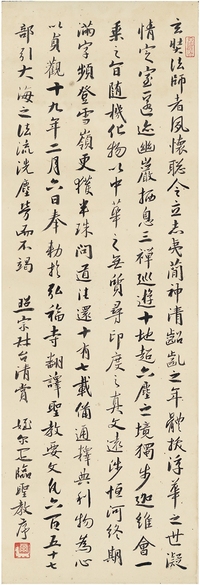 玄奘法師者夙懷聰令立志夷簡神清齠齔之年體拔浮華之世凝
情定室匿迹幽巖栖息三禪巡遊十地超六塵之境獨步迦維會一
乘之旨隨機化物以中華之無質尋印度之真文遠涉恒河終期
滿字頻登雪嶺更獲半珠問道法還十有七載備通釋典利物為心
以貞觀十九年二月六日奉勅於弘福寺翻譯聖教要文凡六百五十七
部引大海之法流洗塵勞而不竭 宗林台清賞 臨聖教序